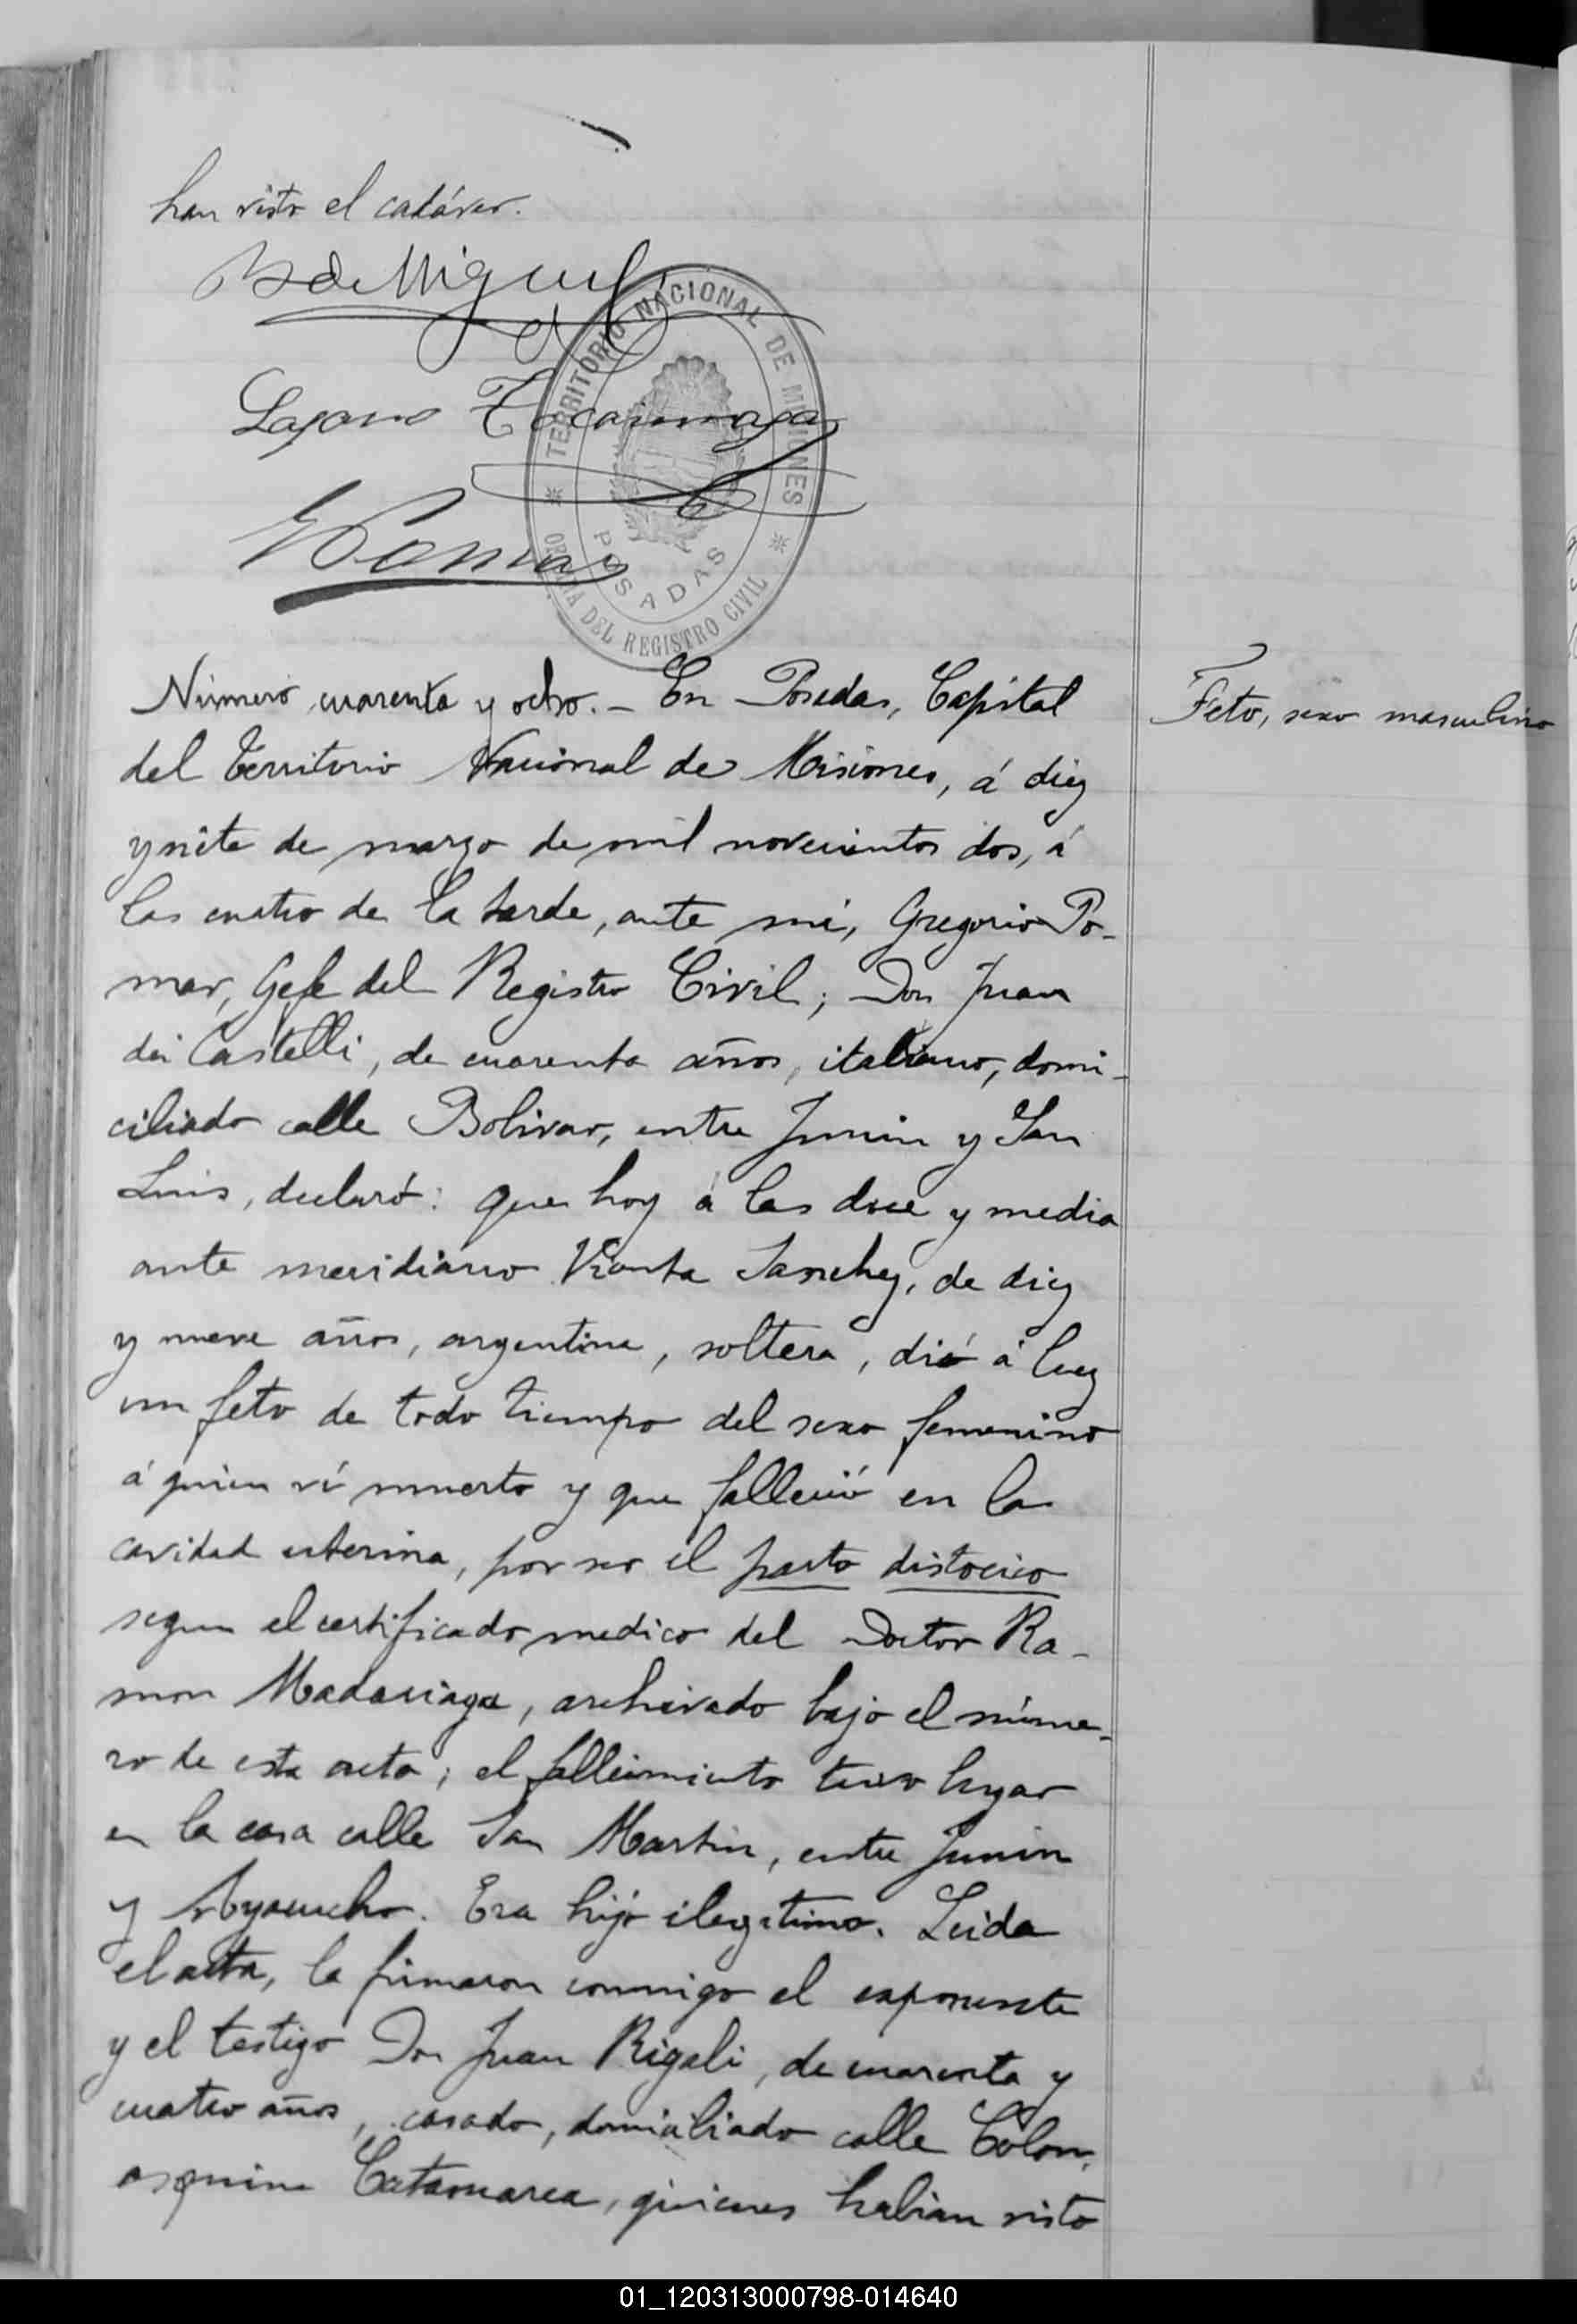 han visto el cadáver.
B de Miguel
TERRITORIO NACIONAL DE MISIONES
POSADAS
OFICINA DEL REGISTRO CIVIL
GPomar
Número cuarenta y ocho.- En Posadas, Capital
Feto, sexo masculino
del Territorio Nacional de Misiones, á diez
y siete de marzo de mil novecientos dos, á
las cuatro de la tarde, ante mí, Gregorio Po-
mar, Gefe del Registro Civil; Don Juan
dei Castelli, de cuarenta años, italiano, domi-
ciliado calle Bolivar, entre Junin y San
Luis, declaró: que hoy á las doce y media
ante meridiano Sanchez, de diez
y nueve años, argentina, soltera, dió á luz
un feto de todo tiempo del sexo femenino
á quien ví muerto y que falleció en la
cavidad uterina, por ser el parto distocico
segun el certificado medico del Doctor Ra-
mon Madariaga, archivado bajo el núme-
ro de esta acta; el fallecimiento tuvo lugar
en la casa calle San Martin, entre Junin
y Ayacucho. Era hijo ilegitimo. Leida
el acta, la firmaron conmigo el exponente
y el testigo Don Juan Rigali, de cuarenta y
cuatro años, casado, domiciliado calle Colon,
esquina Catamarca, quienes habian visto
01_120313000798-014640